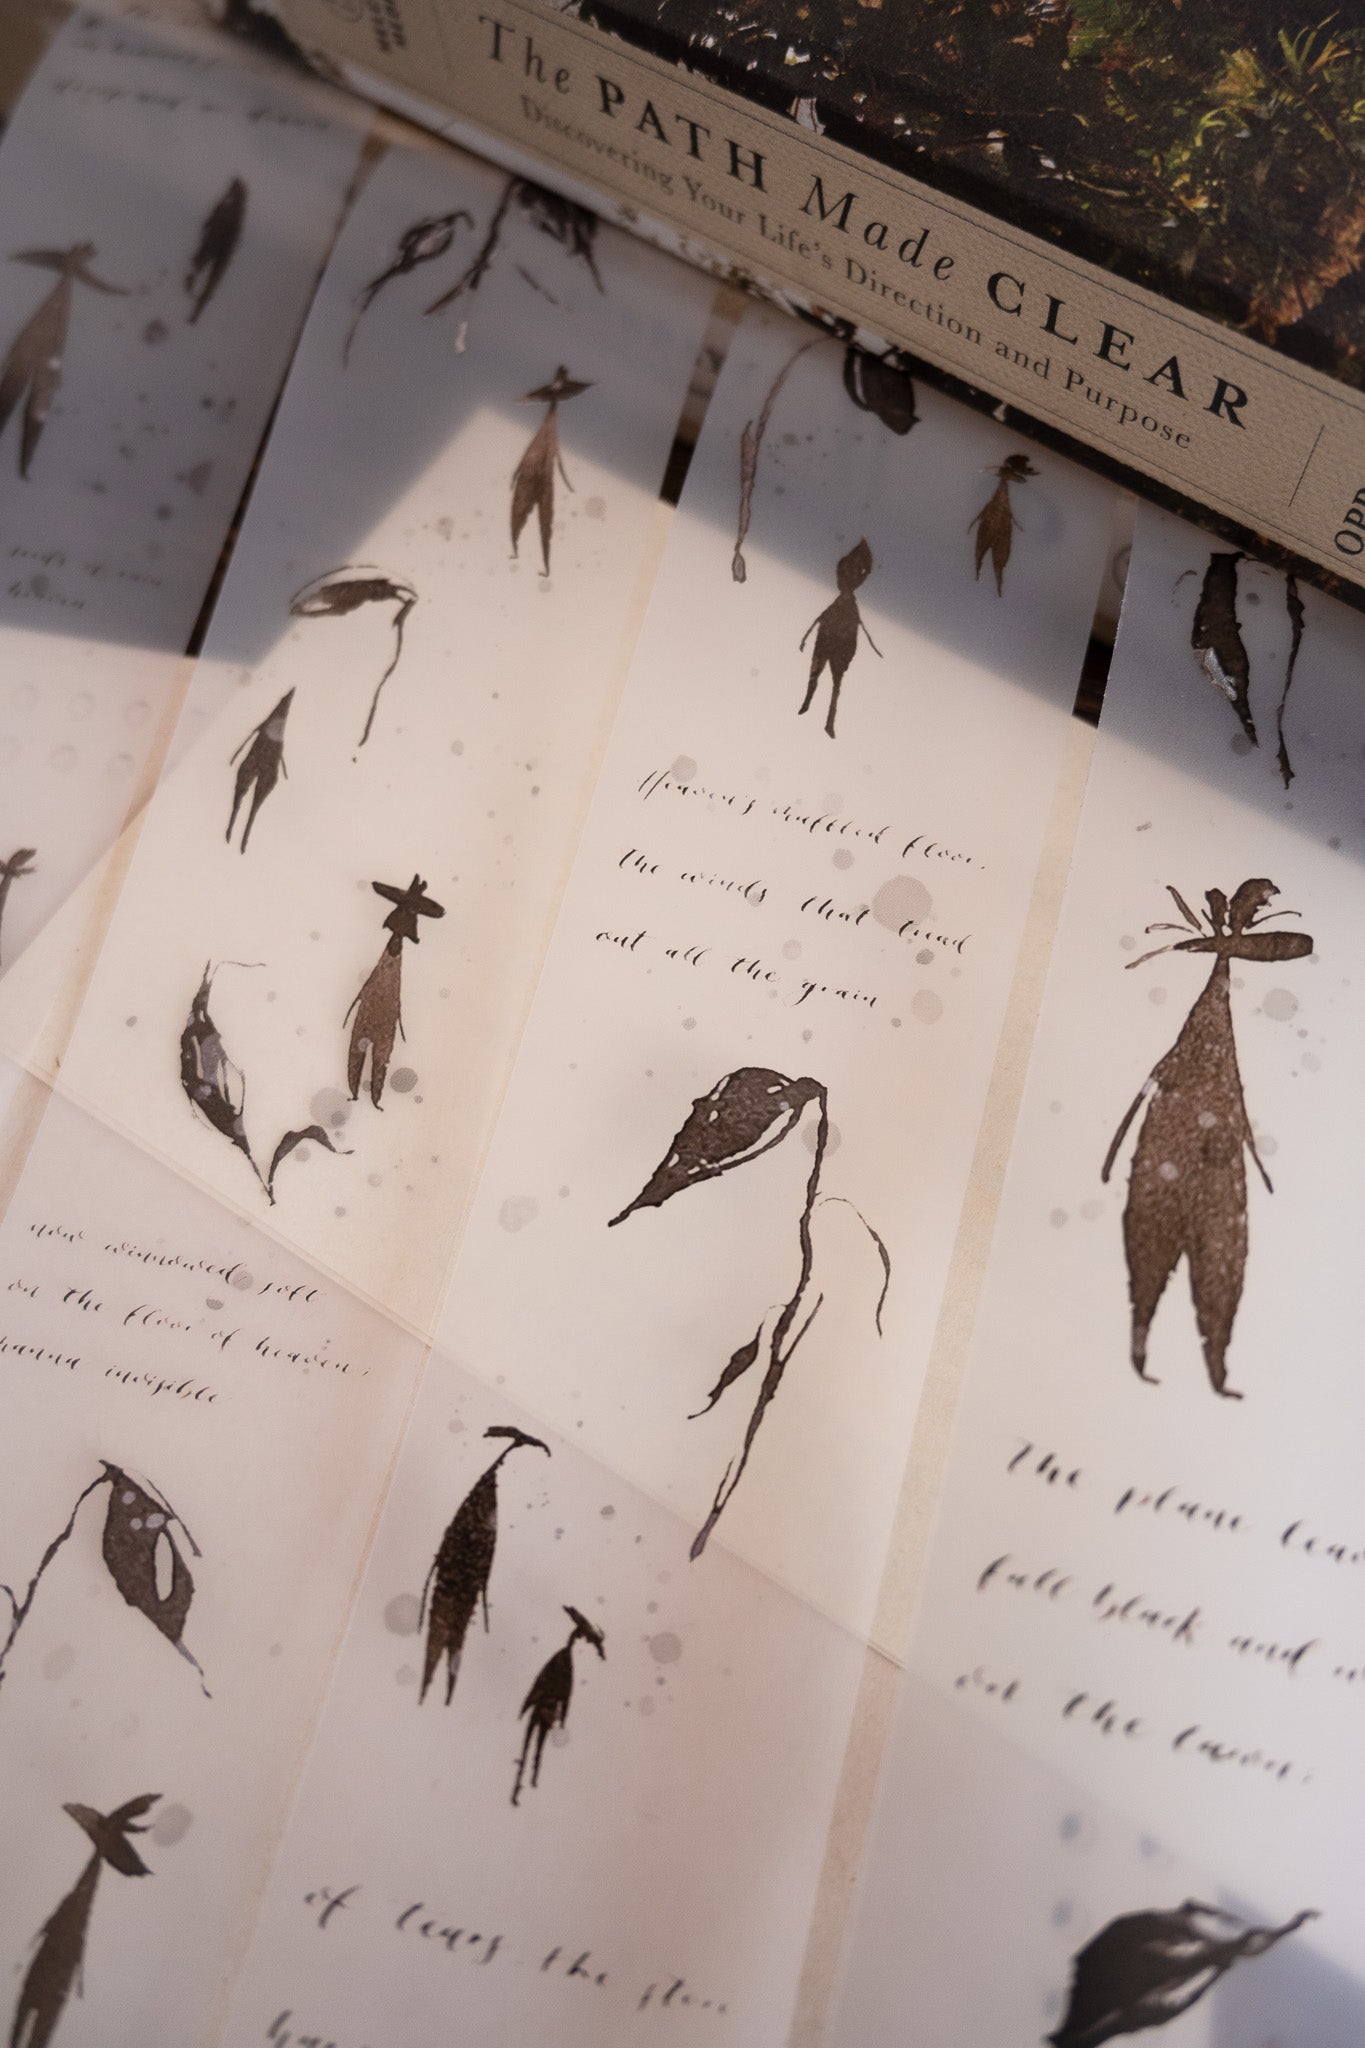 The PATH Made CLEAR
Discovering Your Life's Direction and Purpose
OPR
Heaven's muffled floor.
the winds that tread
out all the grain
now winnowed soft
on the floor of heaven;
manna invisible
The plane leav
fall black and w
on the lawn;
of tears, the